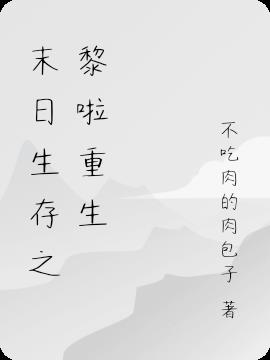 末日生存之
黎啦重生
不吃肉的肉包子 著